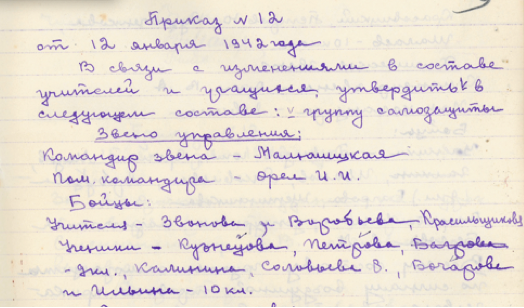 Приказ N 12
от 12 января 1942 года
В связи с изменениями в составе
учителей и учащихся, утвердить в
следующем составе: группу самозащиты
Звено управления:
Командир звена - Малюшицкая
Пом. командира - Орел И.И.
Бойцы:
Учителя - Звонова и Воробьева, Красильщикова
Ученики - Кузнецова, Петрова, Багрова
- 9кл., Калинина, Соловьева В., Бочарова
и Ильина - 10 кл.